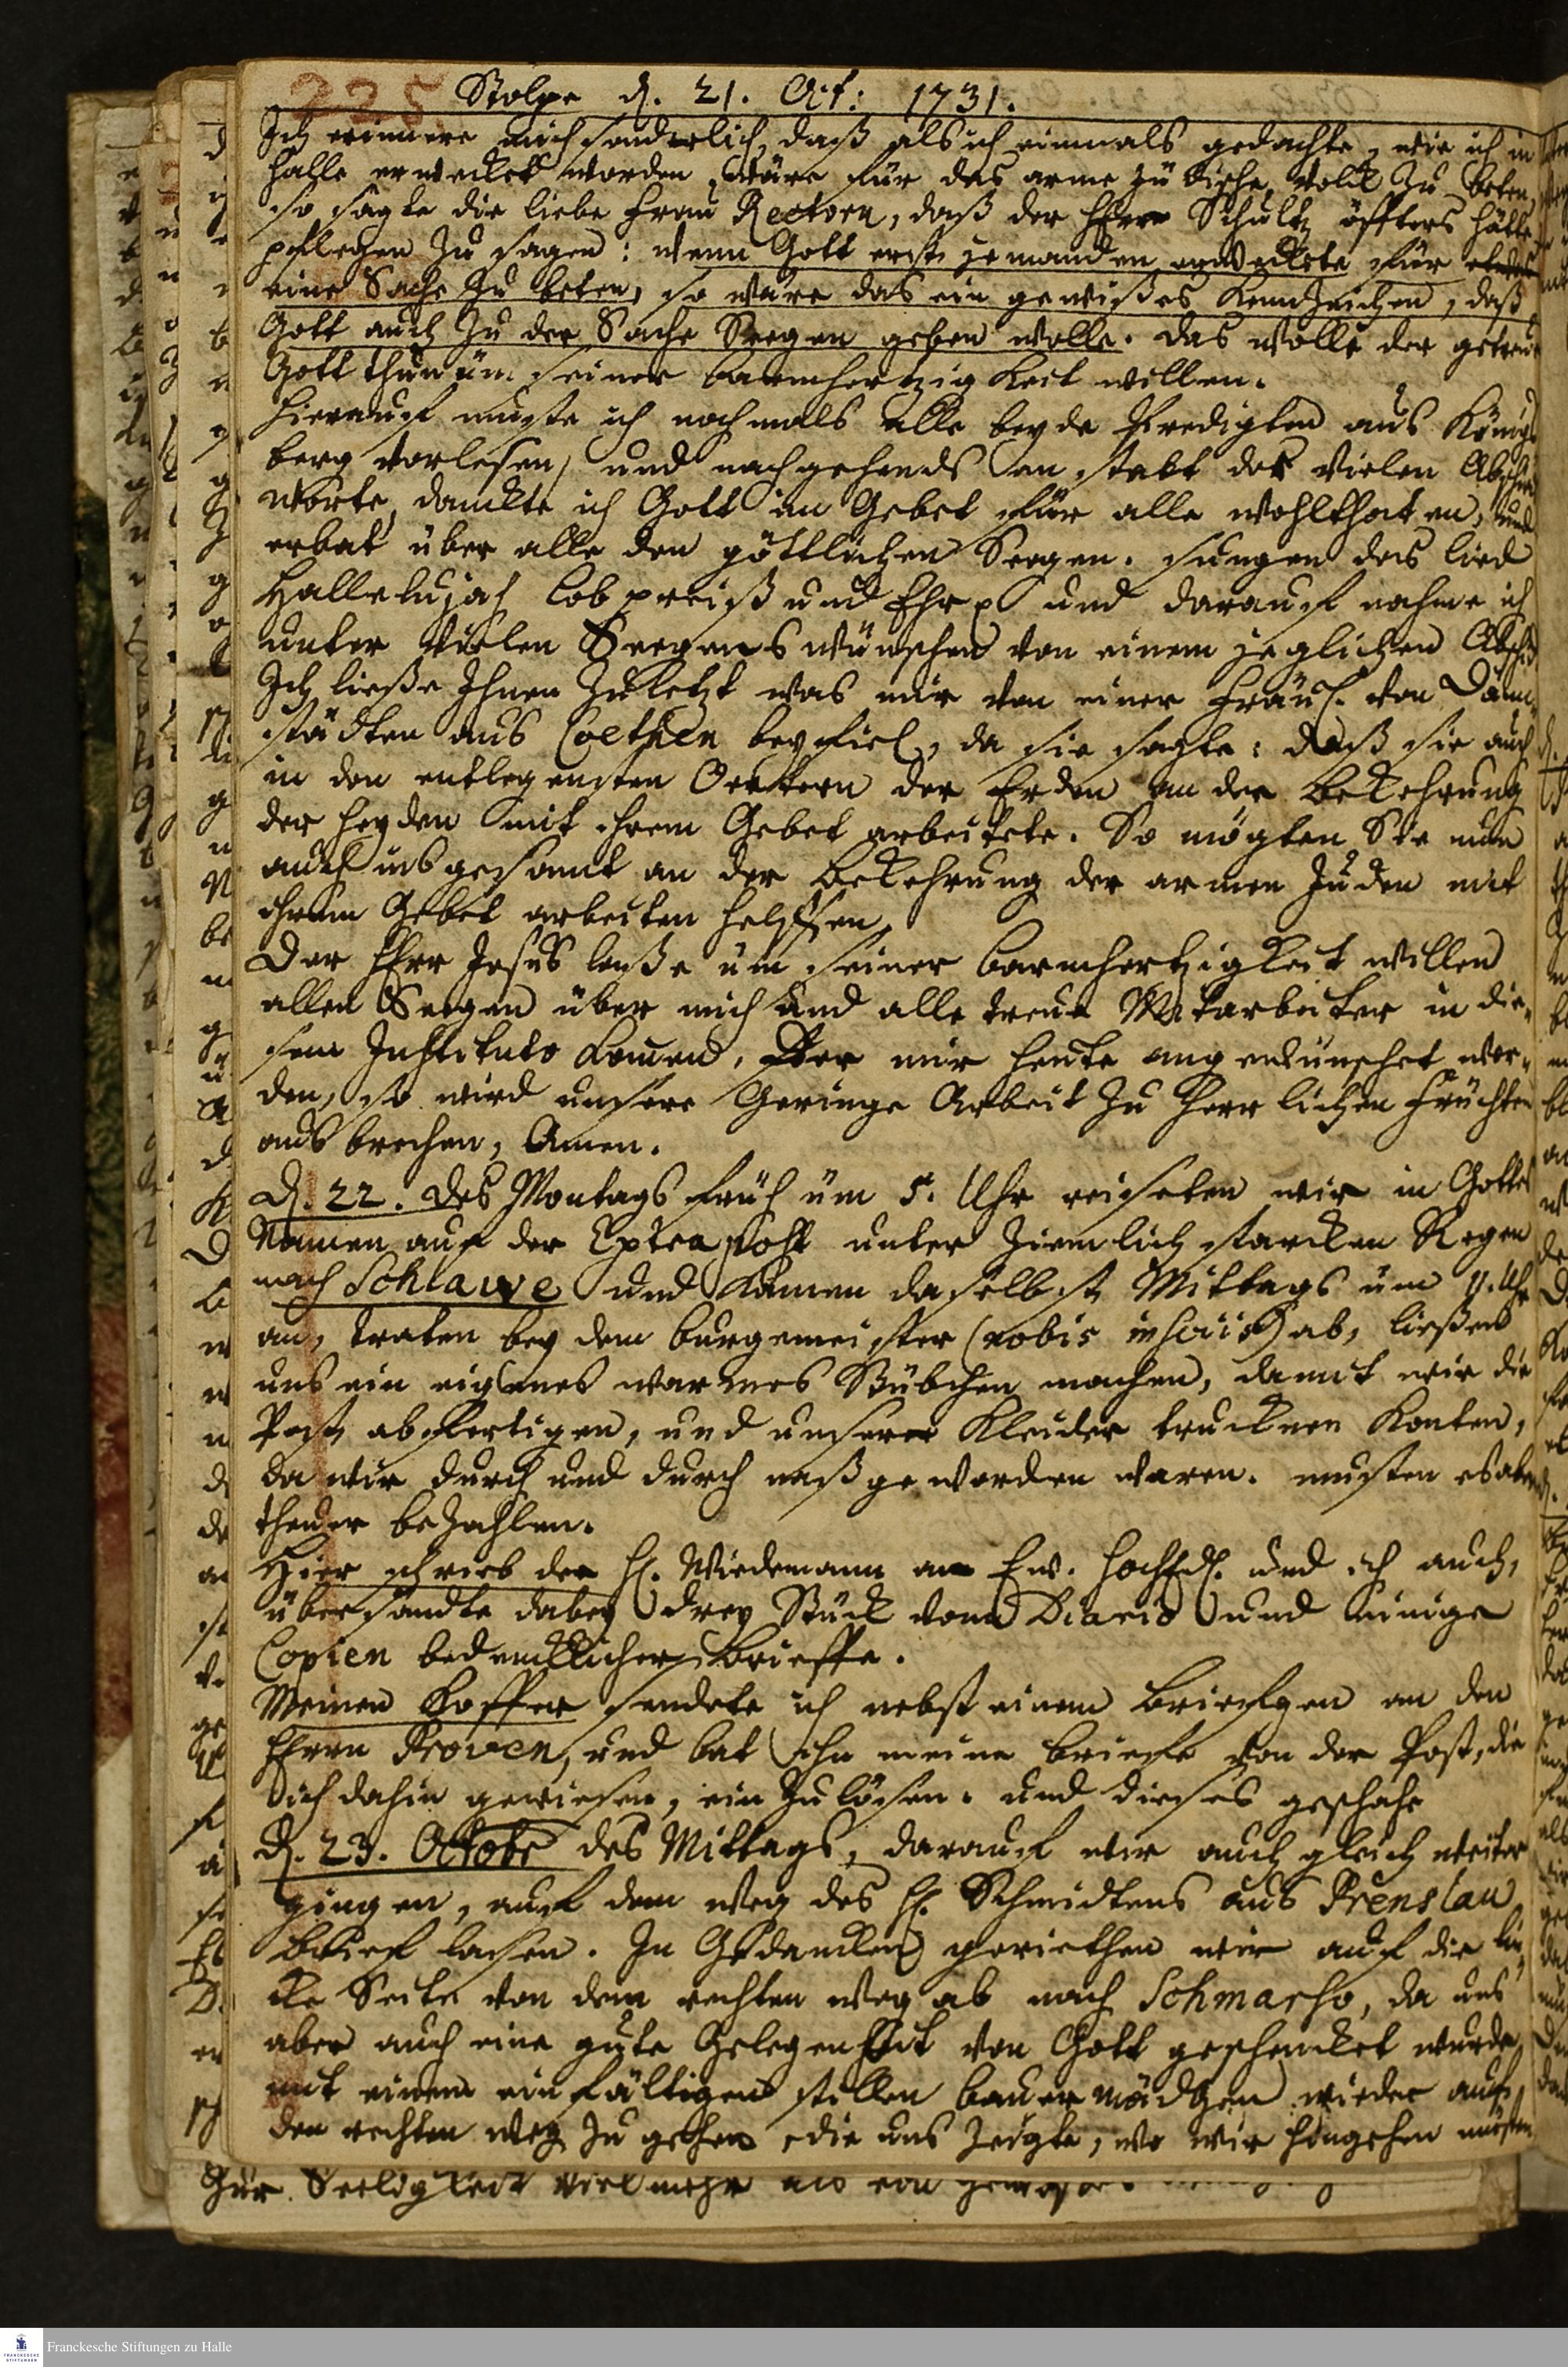 225.
Stolpe d. 21. Oct: 1731.
Ich erinnere mich sonderlich, daß als ich einmals gedachte, wie ich in
Halle erwecket worden wäre für das arme jüdische Volck zu beten,
so sagte die liebe Frau Rectorn, daß der Herr Schultz öffters hätte
pflegen zu sagen: wenn Gott erst jemanden erweckete für
eine Sache zu beten, so wäre das ein gewißes Kennzeichen, daß
Gott auch zu der Sache Seegen geben wolle. Das wolle der getreue
Gott thun üm seiner Barmhertzigkeit willen.
Hierauf muste ich nochmals alle beyde Predigten aus Königs
berg vorlesen, und nachgehends an statt der vielen Abschieds
worte, danckte ich Gott im Gebet für alle Wohlthaten, und
erbat über alle den göttlichen Seegen. sungen das Lied
Hallelujah Lob preiß und Ehr und darauf nahme ich
unter vielen Seegenswünschen von einem jeglichen Abschied
Ich ließe Ihnen zuletzt was mir von einer Fräul. von Dam
städten aus Coethen beyfiel, da sie sagte: daß sie auch
in den entlegensten Oertern der Erden an der Bekehrung
der Heyden mit ihrem Gebet arbeitete. So mögten Sie nun
auch insgesamt an der Bekehrung der armen Juden mit
ihrem Gebet arbeiten helffen.
Der Herr Jesus laße üm seiner Barmhertzigkeit willen
allen Seegen über mich und alle treue Mitarbeiter in die-
sem Instituto komen, der mir heute angewünschet wor-
den, so wird unsere Geringe Arbeit zu herrlichen Früchten
ausbrechen, Amen.
D. 22. des Montags früh üm 5. Uhr reiseten wir in Gottes
Namen auf der Extrapost unter ziemlich starcken Regen
nach Schlawe und kamen daselbst Mittags um 11. Uhr
an, traten bey dem Burgemeister (nobis insciis) ab, ließen
uns ein eigenes warmes Stübchen machen, damit wir die
Post abfertigen, und unsere Kleider trucknen konten,
da wir durch und durch naß geworden waren. musten es aber
theuer bezahlen.
Hier schrieb der H. Wiedemann an Ew. Hoched. und ich auch,
übersandte dabey drey Stück vom Diario und einige
Copien bedencklicher Brieffe.
Meinen Koffer sendete ich nebst einem Briefgen an den
Herrn Proven, und bat ihn meine Briefe von der Post, die
ich dahin gewiesen, ein zu lösen. und dieses geschahe
D. 23. Octobr des Mittags, darauf wir auch gleich weiter
gingen, auf dem Weg des H. Schmidtens aus Prenslau
Brief lasen. In Gedancken geriethen wir auf die lin
cke Seite von dem rechten Weg ab nach Schmarso, da uns
aber auch eine gute Gelegenheit von Gott geschencket wurde
mit einem einfältigen stillen Bauermädgen wieder auf
den rechten Weg zu gehen, die uns zeigte, wo wir hingehen musten
Zur Seeligkeit vielmehr als ein
Franckesche Stiftungen zu Halle